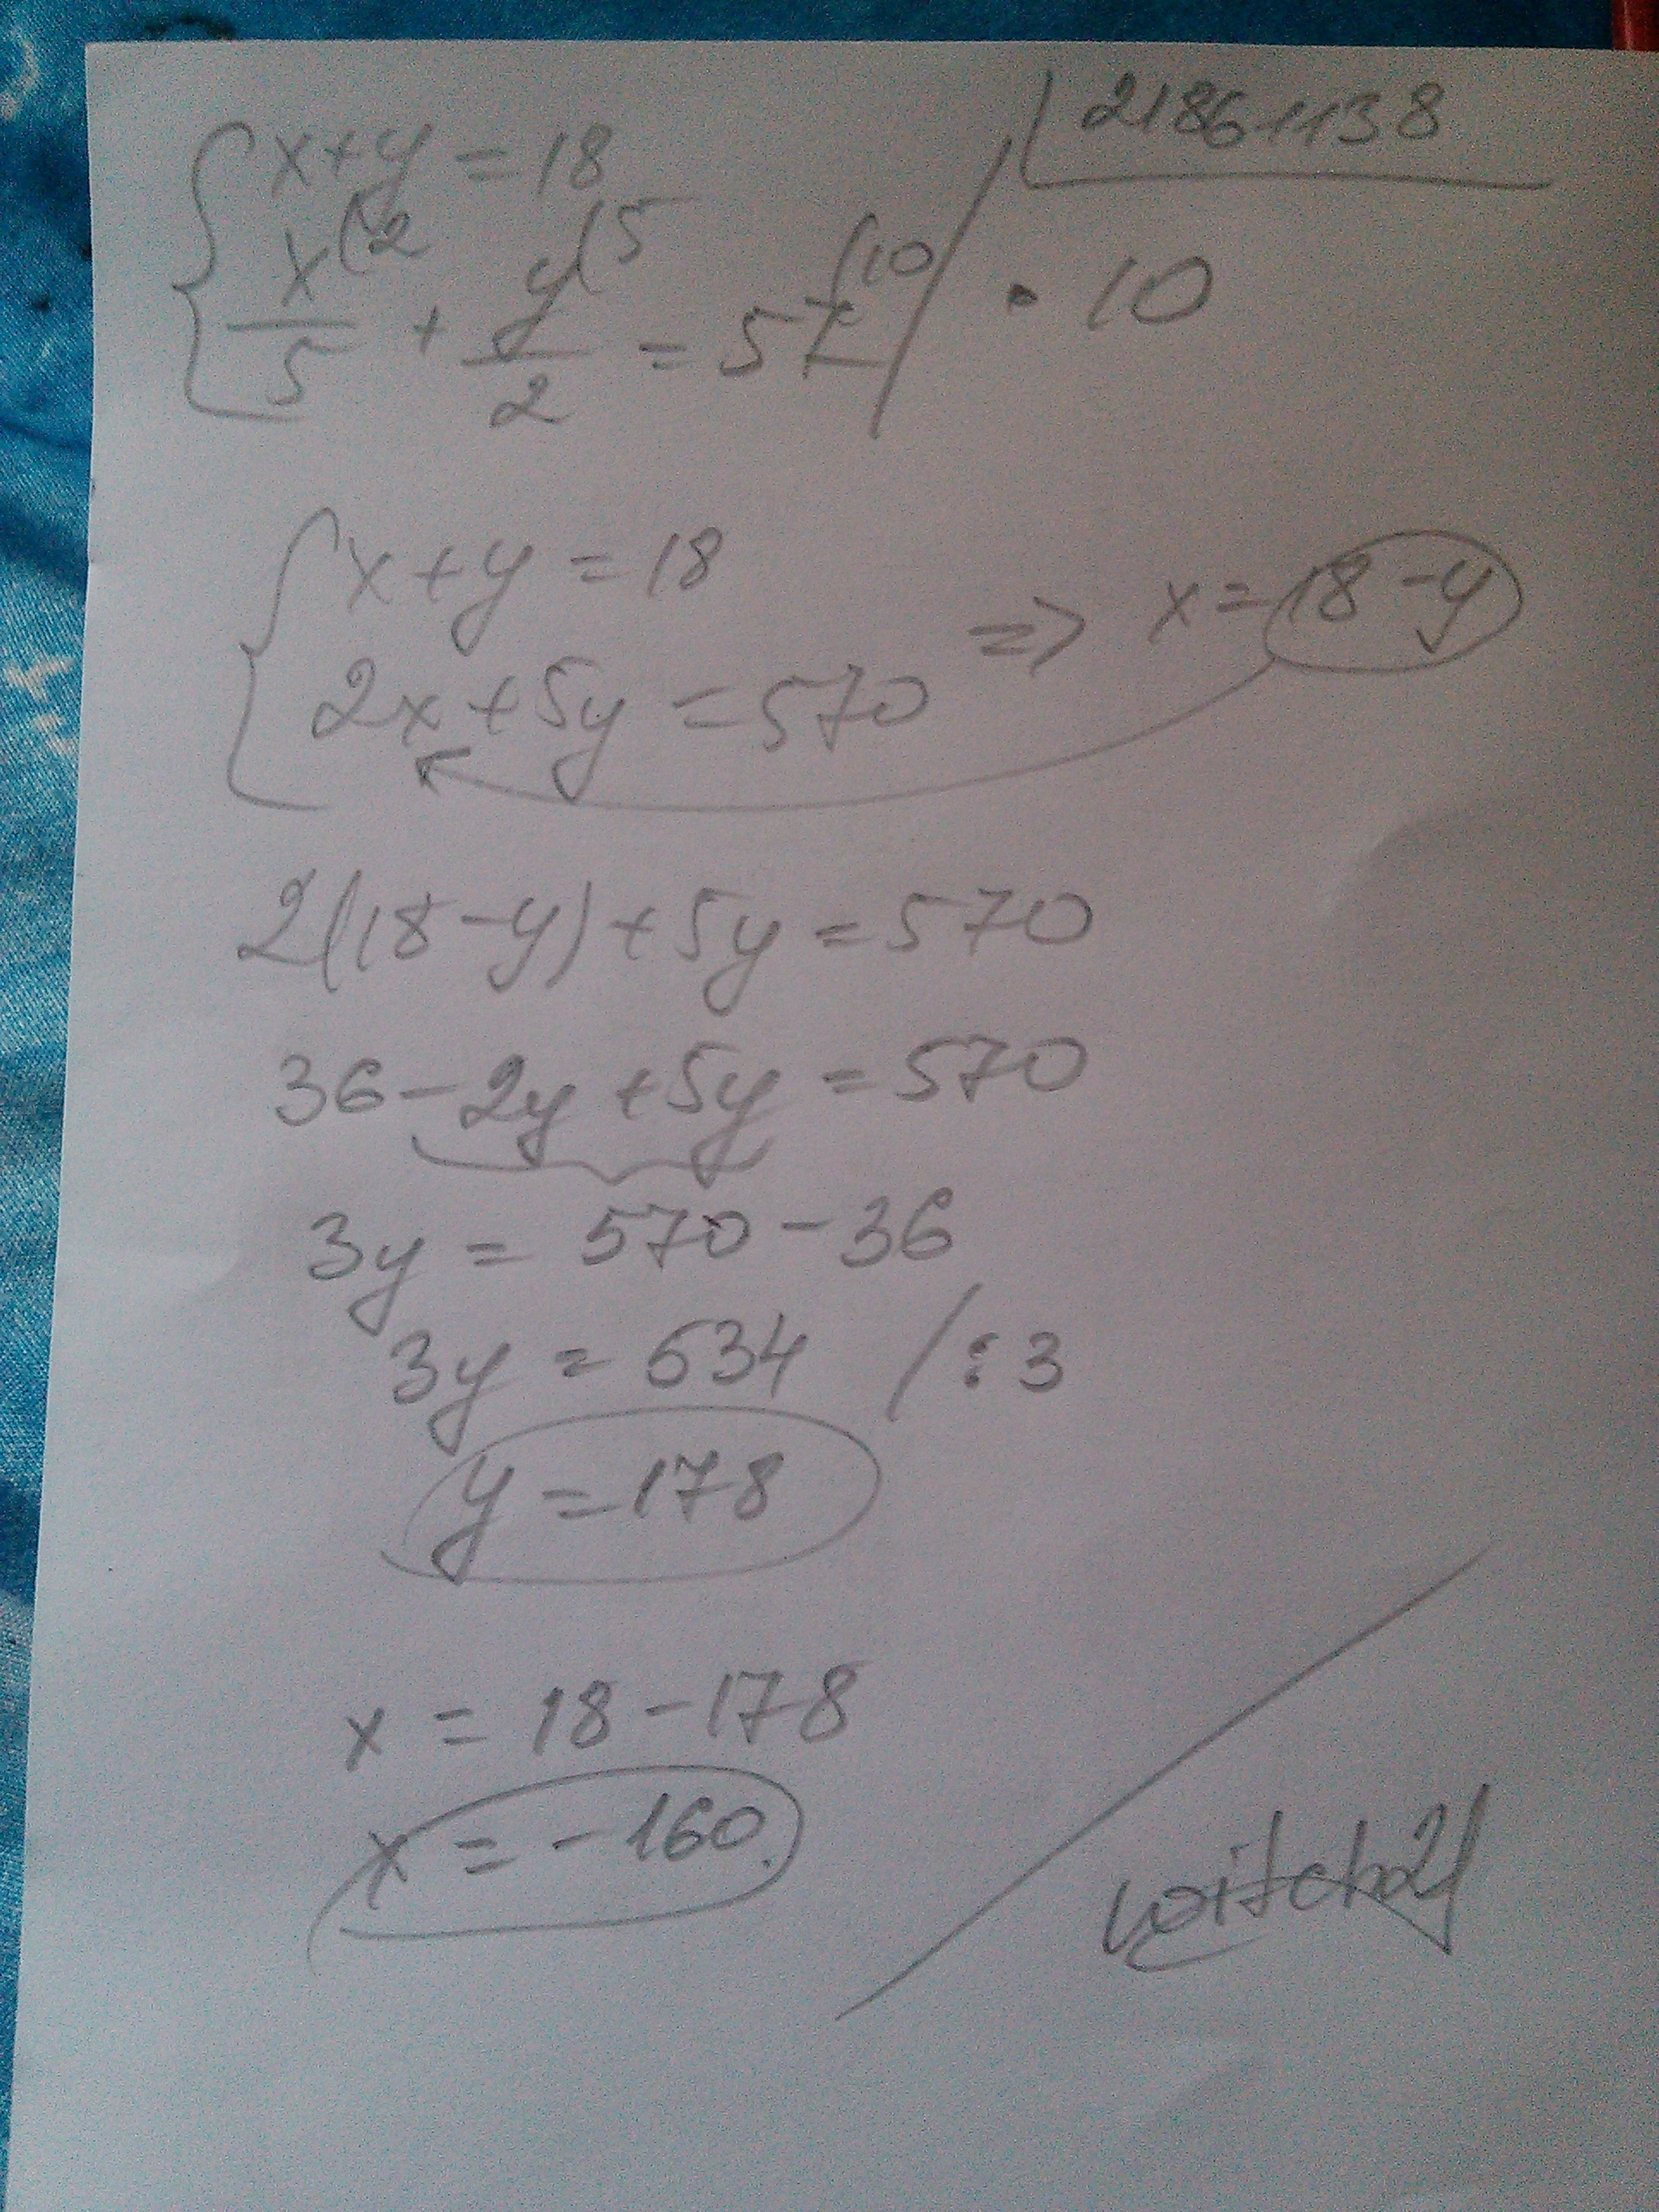 21861138
x+y = 18
x(2 y(5 (10
x/5 + y/2 = 57 / · 10
x+y = 18 => x = 18-y
2x+5y = 570
2(18-y)+5y = 570
36-2y+5y = 570
3y = 570-36
3y = 534 /:3
y = 178
x = 18-178
x = -160.
witch21